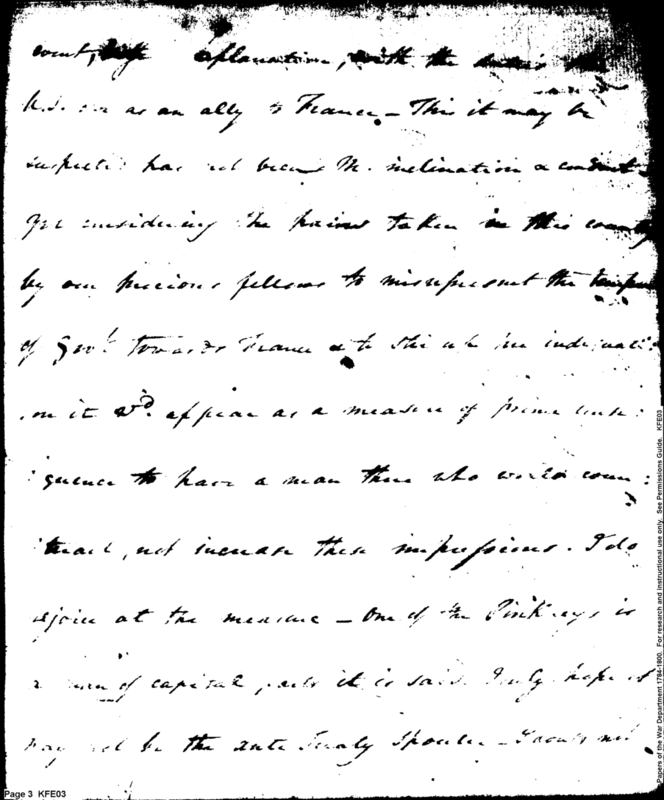 explanation, with the
as an ally to France. - This it may be
has not been Mr. inclination & conduct
Yet considering the pains taken in this country
by our precious fellows to misrepresent the temper
of Govt. towards France & to stir up her indignati
on it wd. appear as a measure of prime conse:
quence to have a man there who would coun:
teract, not increase these impressions. I do
rejoice at the measure - One of the Pinkneys is
a man of capital parts it is said. I only hope it
may not be the ante Treaty Spouter - I would not
Page 3 KFE03
Papers of the War Department 1784-1800. For research and instructional use only. See Permissions Guide. KFE03